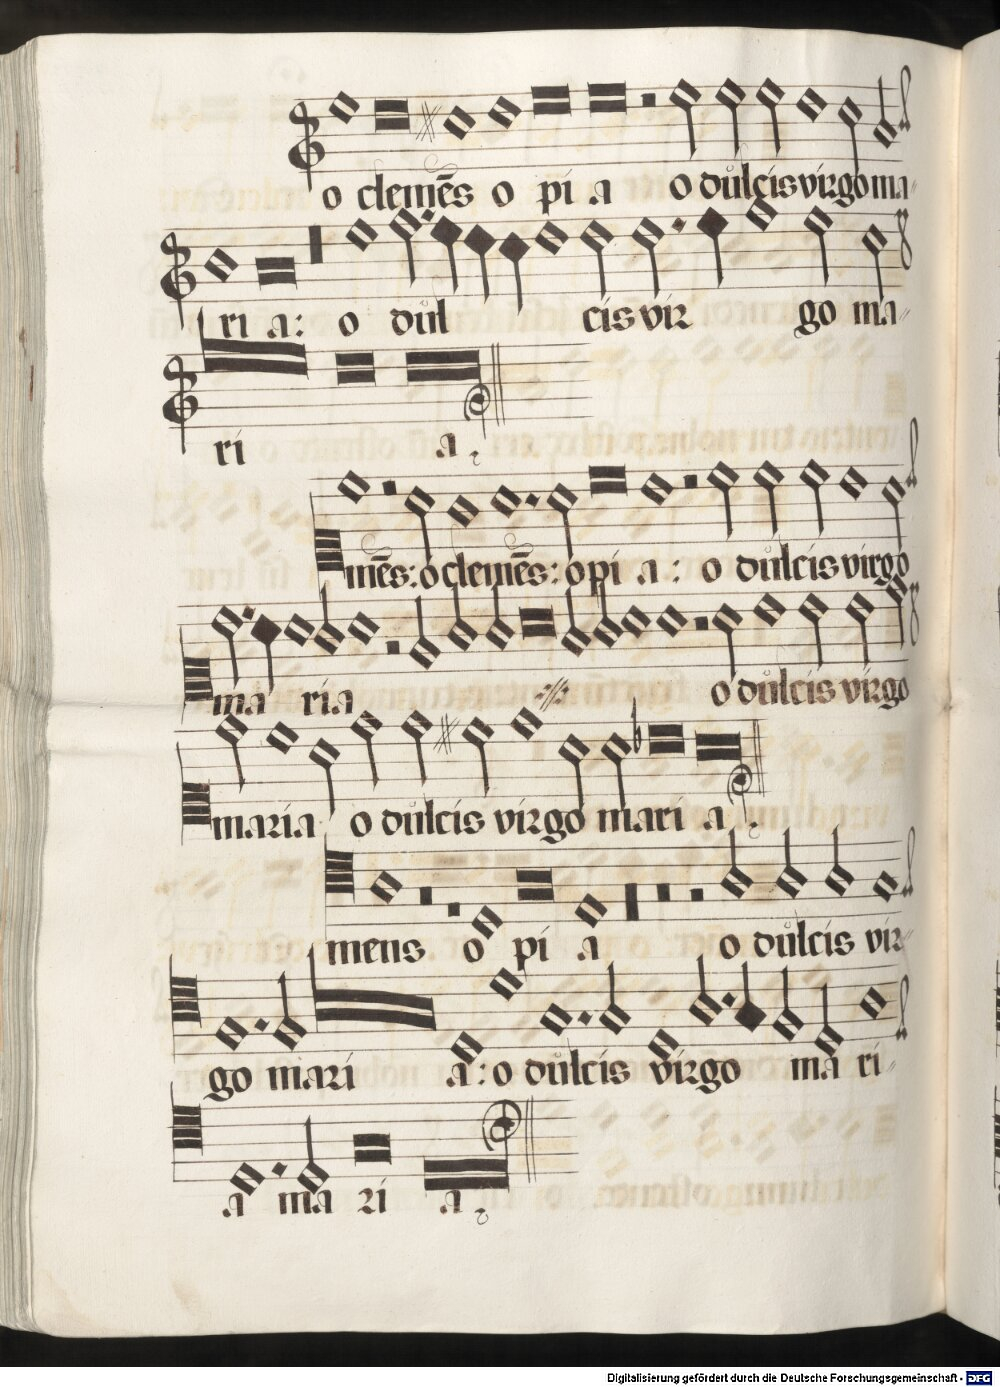 o clemēs o pi a o důlcis virgo ma=
ri a: o důl cis vir go ma=
ri a.
mēs: o clemēs: o pi a: o důlcis virgo
ma ria o důlcis virgo
maria o důlcis virgo mari a.
mens o pi a o důlcis vir=
go mari a: o důlcis virgo ma ri=
a ma ri a.
Digitalisierung gefördert durch die Deutsche Forschungsgemeinschaft - DFG